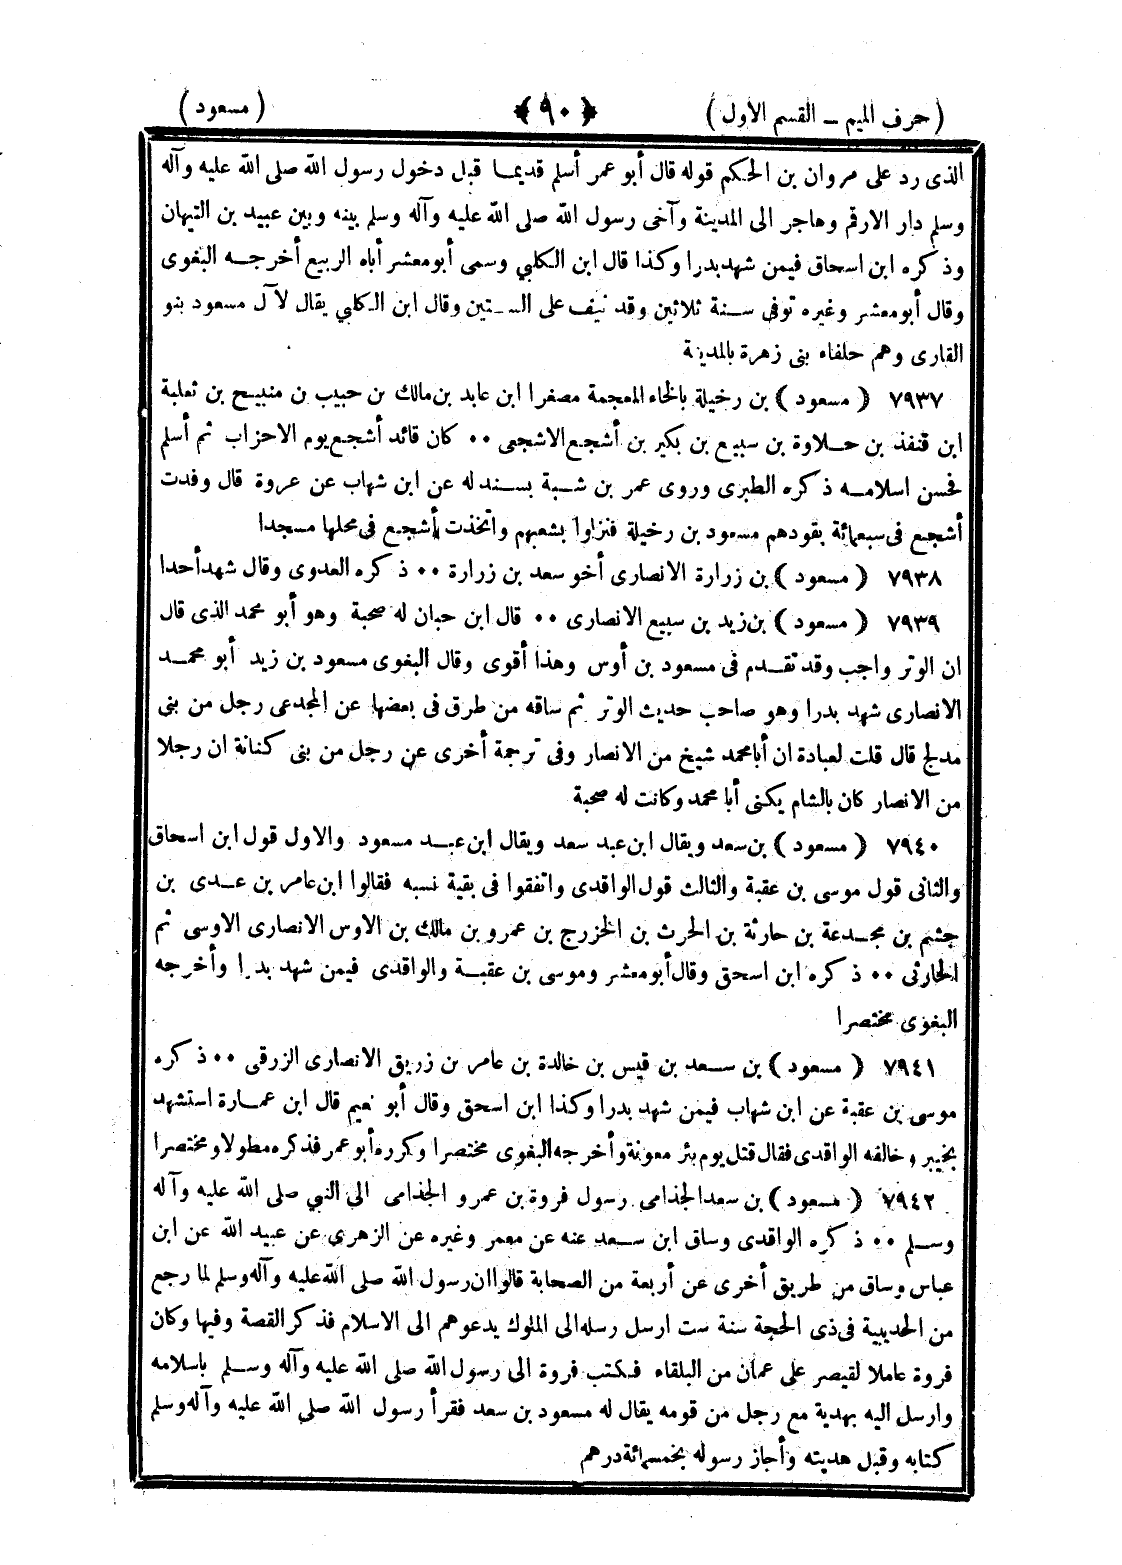 ( حرف الميم – القسم الأول ) ﴿ ٩٠ ﴾ ( مسعود )
الذى رد على مروان بن الحكم قوله قال أبو عمر أسلم قديما قبل دخول رسول الله صلى الله عليه وآله
وسلم دار الارقم وهاجر الى المدينة وآخى رسول الله صلى الله عليه وآله وسلم بينه وبين عبيد بن التيهان
وذكره ابن اسحاق فيمن شهد بدرا وكذا قال ابن الكلبي وسمى أبو معشر أباه الربيع أخرجه البغوى
وقال أبو معشر وغيره توفى سنة ثلاثين وقد نيف على الستين وقال ابن الكلبي يقال لآل مسعود بنو
القارى وهم حلفاء بنى زهرة بالمدينة
٧٩٣٧ ( مسعود ) بن رخيلة بالخاء المعجمة مصغرا ابن عابد بن مالك بن حبيب بن منبيح بن ثعلبة
ابن قنفذ بن حلاوة بن سبيع بن بكير بن أشجع الاشجعى ٠٠ كان قائد أشجع يوم الاحزاب ثم أسلم
فحسن اسلامه ذكره الطبرى وروى عمر بن شبة بسند له عن ابن شهاب عن عروة قال وفدت
أشجع فى سبعمائة يقودهم مسعود بن رخيلة فنزلوا بشعبهم واتخذت أشجع فى محلها مسجدا
٧٩٣٨ ( مسعود ) بن زرارة الانصارى أخو سعد بن زرارة ٠٠ ذكره العدوى وقال شهد أحدا
٧٩٣٩ ( مسعود ) بن زيد بن سبيع الانصارى ٠٠ قال ابن حبان له صحبة وهو أبو محمد الذى قال
ان الوتر واجب وقد تقدم فى مسعود بن أوس وهذا أقوى وقال البغوى مسعود بن زيد أبو محمد
الانصارى شهد بدرا وهو صاحب حديث الوتر ثم ساقه من طرق فى بعضها عن المجدعى رجل من بنى
مدلج قال قلت لعبادة ان أبا محمد شيخ من الانصار وفى ترجمة أخرى عن رجل من بنى كنانة ان رجلا
من الانصار كان بالشام يكنى أبا محمد وكانت له صحبة
٧٩٤٠ ( مسعود ) بن سعد ويقال ابن عبد سعد ويقال ابن عبد مسعود والاول قول ابن اسحاق
والثانى قول موسى بن عقبة والثالث قول الواقدى واتفقوا فى بقية نسبه فقالوا ابن عامر بن عدى بن
جشم بن مجدعة بن حارثة بن الحرث بن الخزرج بن عمرو بن مالك بن الاوس الانصارى الاوسى ثم
الحارثى ٠٠ ذكره ابن اسحق وقال أبو معشر وموسى بن عقبة والواقدى فيمن شهد بدرا وأخرجه
البغوى مختصرا
٧٩٤١ ( مسعود ) بن سعد بن قيس بن خالدة بن عامر بن زريق الانصارى الزرقى ٠٠ ذكره
موسى بن عقبة عن ابن شهاب فيمن شهد بدرا وكذا ابن اسحق وقال أبو نعيم قال ابن عمارة استشهد
بخيبر وخالفه الواقدى فقال قتل يوم بئر معونة وأخرجه البغوى مختصرا وكرره أبو عمر فذكره مطولا ومختصرا
٧٩٤٢ ( مسعود ) بن سعد الجذامى رسول فروة بن عمرو الجذامى الى النبي صلى الله عليه وآله
وسلم ٠٠ ذكره الواقدى وساق ابن سعد عنه عن معمر وغيره عن الزهرى عن عبيد الله عن ابن
عباس وساق من طريق أخرى عن أربعة من الصحابة قالوا ان رسول الله صلى الله عليه وآله وسلم لما رجع
من الحديبية فى ذى الحجة سنة ست ارسل رسله الى الملوك يدعوهم الى الاسلام فذكر القصة وفيها وكان
فروة عاملا لقيصر على عمان من البلقاء فكتب فروة الى رسول الله صلى الله عليه وآله وسلم باسلامه
وارسل اليه بهدية مع رجل من قومه يقال له مسعود بن سعد فقرأ رسول الله صلى الله عليه وآله وسلم
كتابه وقبل هديته وأجاز رسوله بخمسمائة درهم